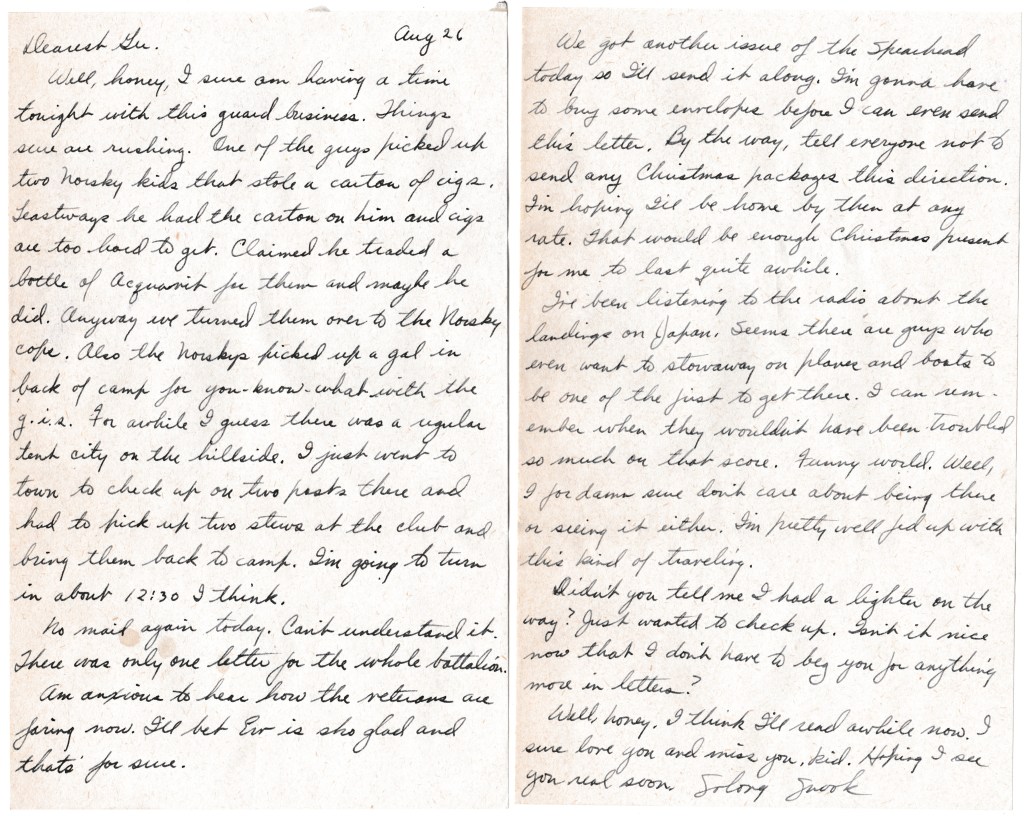 Aug 26
Dearest Gu.
Well, honey, I sure am having a time
tonight with this guard business. Things
sure are rushing. One of the guys picked up
two Norsky kids that stole a carton of cigs.
Leastways he had the carton on him and cigs
are too hard to get. Claimed he traded a
bottle of Acquavit for them and maybe he
did. Anyway we turned them over to the Norsky
cops. Also the Norskys picked up a gal in
back of camp for you-know-what with the
g.i.s. For awhile I guess there was a regular
tent city on the hillside. I just went to
town to check up on two posts there and
had to pick up two stews at the club and
bring them back to camp. I'm going to turn
in about 12:30 I think.
No mail again today. Can't understand it.
There was only one letter for the whole battalion.
Am anxious to hear how the veterans are
faring now. I'll bet Erv is sho glad and
thats for sure.
We got another issue of the Spearhead
today so I'll send it along. I'm gonna have
to buy some envelopes before I can even send
this letter. By the way, tell everyone not to
send any Christmas packages this direction.
I'm hoping I'll be home by then at any
rate. That would be enough Christmas present
for me to last quite awhile.
I've been listening to the radio about the
landings on Japan. Seems there are guys who
even want to stowaway on planes and boats to
be one of the first to get there. I can rem-
ember when they wouldn't have been troubled
so much on that score. Funny world. Well,
I for damn sure don't care about being there
or seeing it either. I'm pretty well fed up with
this kind of traveling.
Didn't you tell me I had a lighter on the
way? Just wanted to check up. Isn't it nice
now that I don't have to beg you for anything
more in letters?
Well, honey, I think I'll read awhile now. I
sure love you and miss you, kid. Hoping I see
you real soon. Solong Snook